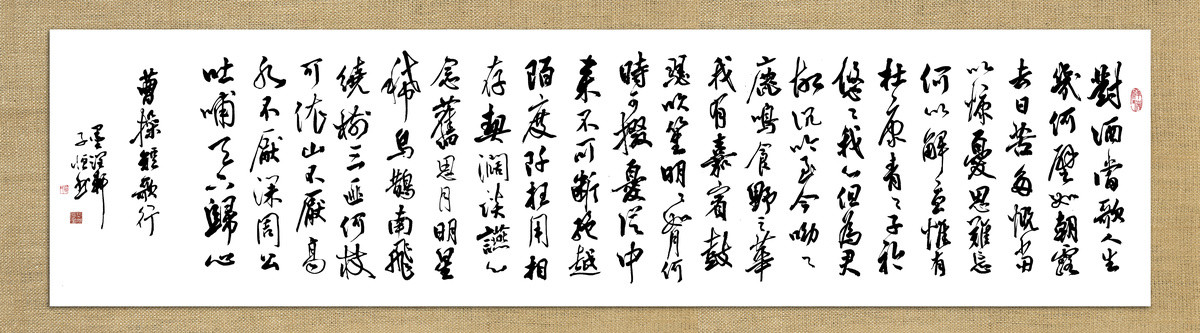 對酒當歌人生
幾何譬如朝露
去日苦多慨當
以慷憂思難忘
何以解憂惟有
杜康青々子衿
悠々我心但為君
故沉吟至今呦々
鹿鳴食野之苹
我有嘉賓鼓
瑟吹笙明々如月何
時可掇憂從中
來不可斷絕越
陌度阡枉用相
存契闊談讌心
念舊恩月明星
稀烏鵲南飛
繞樹三匝何枝
可依山不厭高
水不厭深周公
吐哺天下歸心
曹操短歌行
墨澤軒
子恒書